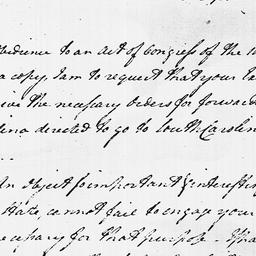 bedience to an act of Congress of the
a copy. I am to request that your
ive the necessary orders for forward
lina directed to go to South Carolin
an object so important & interesting
State, cannot fail to engage your
ecessary for that purpose -